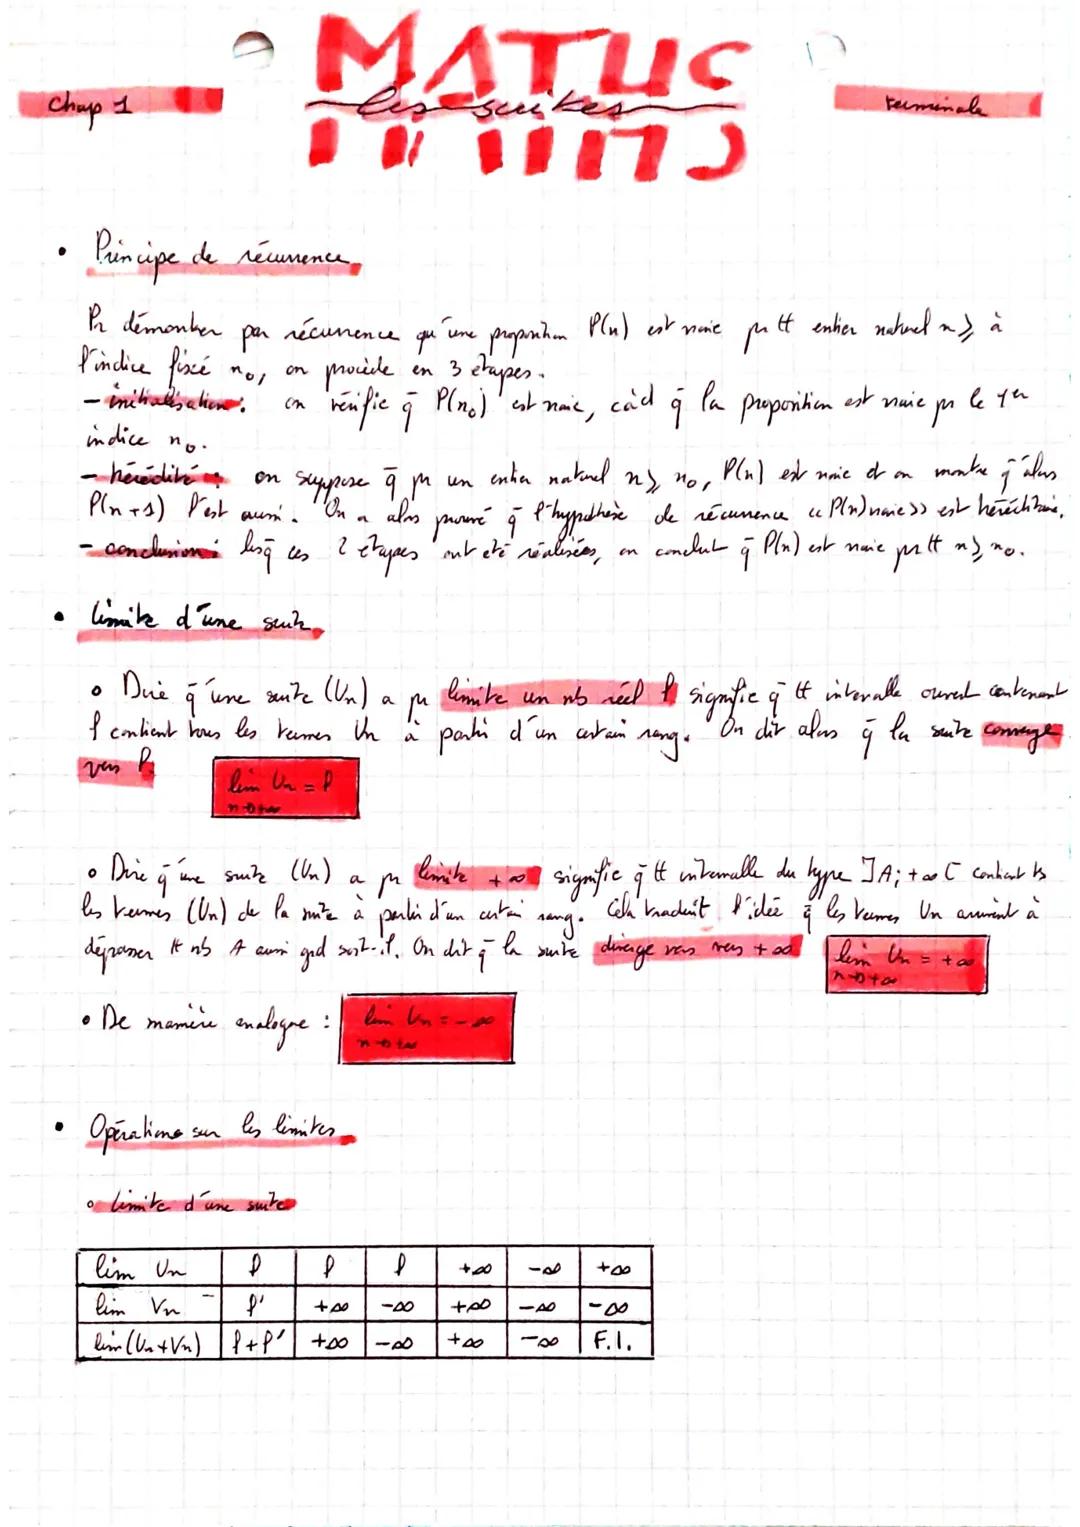 MATHS
Chap 1
les suites
terminale
• Principe de récurrence
Pr démontrer par récurrence qu'une proposition P(n) est vraie pr tt entier naturel n ⩾ à
l'indice fixé n₀, on procède en 3 étapes.
- initialisation : on vérifie q̄ P(n₀) est vraie, càd q̄ la proposition est vraie pr le 1er
indice n₀.
- hérédité : on suppose q̄ pr un entier naturel n ⩾ n₀, P(n) est vraie et on montre q̄ 'alors
P(n+1) l'est aussi. On a alors prouvé q̄ l'hypothèse de récurrence « P(n) vraie » est héréditaire.
- conclusion : lsq̄ ces 2 étapes ont été réalisées, on conclut q̄ P(n) est vraie pr tt n ⩾ n₀.
• limite d'une suite
◦ Dire q̄ 'une suite (Un) a pr limite un nb réel l signifie q̄ tt intervalle ouvert contenant
l contient tous les termes Un à partir d'un certain rang. On dit alors q̄ la suite converge
vers l.
lim Un = l
n→+∞
◦ Dire q̄ 'une suite (Un) a pr limite +∞ signifie q̄ tt intervalle du type ]A; +∞[ contient ts
les termes (Un) de la suite à partir d'un certain rang. Cela traduit l'idée q̄ les termes Un arrivent à
dépasser tt nb A aussi grd soit-il. On dit q̄ la suite diverge vers vers +∞
lim Un = +∞
n→+∞
◦ De manière analogue :
lim Un = -∞
n→+∞
• Opérations sur les limites
◦ limite d'une suite
lim Un l l l +∞ -∞ +∞
lim Vn l' +∞ -∞ +∞ -∞ -∞
lim(Un+Vn) l+l' +∞ -∞ +∞ -∞ F.I.